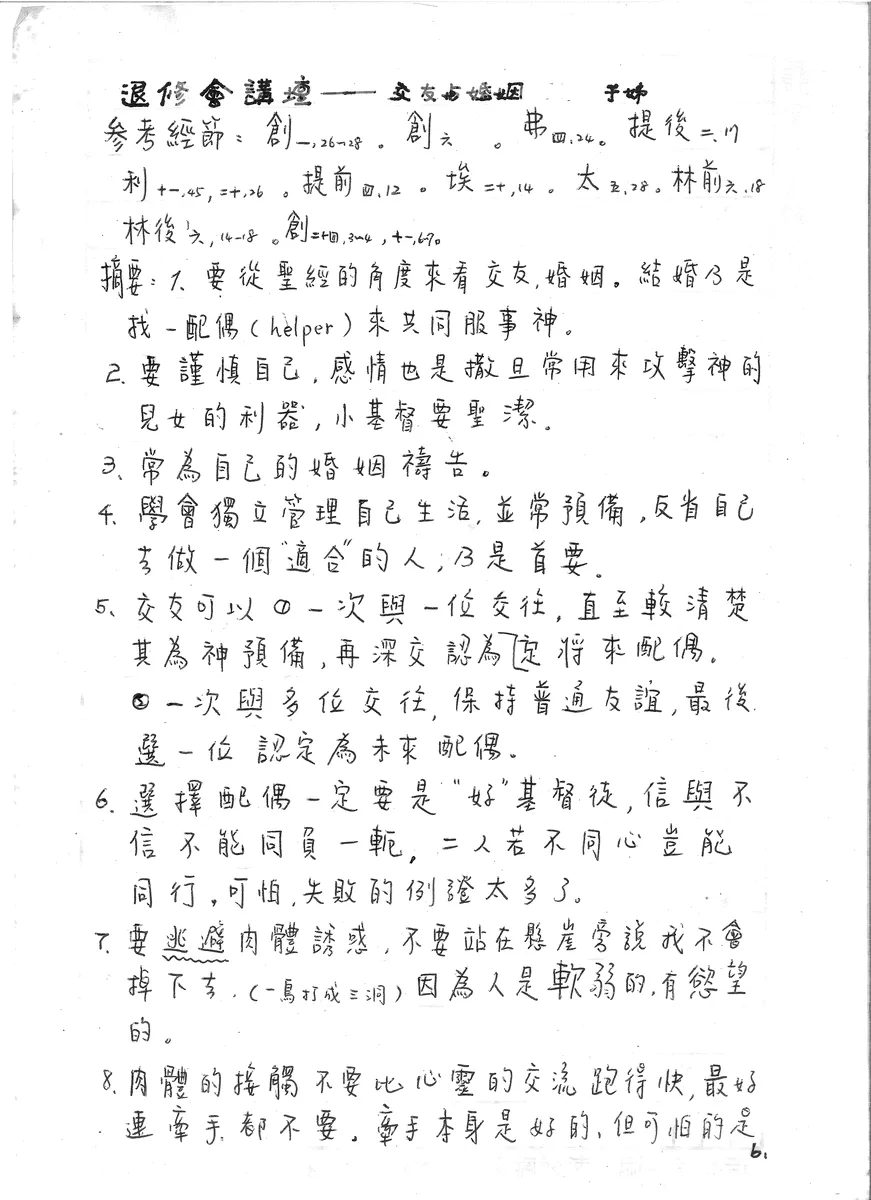 退修會講壇——交友与婚姻 于姊
参考經節：創一,26~28。創六 。弗四,24。提後二,17
利十一,45,二十,26。提前四,12。埃二十,14。太五,28。林前六,18
林後六,14-18。創二十四,3~4,十一,6-7。
摘要：1、要從聖經的角度來看交友,婚姻。結婚乃是
找一配偶(helper)來共同服事神。
2、要謹慎自己,感情也是撒旦常用來攻擊神的
兒女的利器,小基督要聖潔。
3、常為自己的婚姻禱告。
4、學會獨立管理自己生活,並常預備,反省自己
去做一個"適合"的人,乃是首要。
5、交友可以①一次與一位交往,直至較清楚
其為神預備,再深交認為定將來配偶。
②一次與多位交往,保持普通友誼,最後
選一位認定為未來配偶。
6、選擇配偶一定要是"好"基督徒,信與不
信不能同負一軛,二人若不同心豈能
同行,可怕,失敗的例證太多了。
7、要逃避肉體誘惑,不要站在懸崖旁說我不會
掉下去,(一鳥打成三洞)因為人是軟弱的,有慾望
的。
8、肉體的接觸不要比心靈的交流跑得快,最好
連牽手都不要。牽手本身是好的、但可怕的是
6.